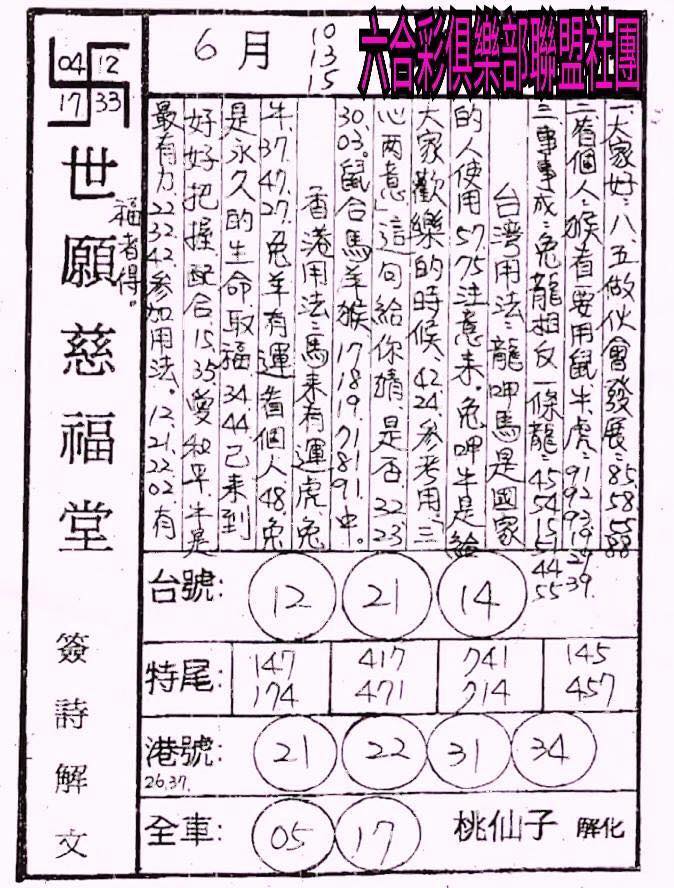 六合彩俱樂部聯盟社團
6月
10
13
15
04 12
17 33
世願慈福堂
簽詩解文
一.大家好:八.五做伙會發展:85.58.55.88
二.看個人:猴看要用鼠.牛.虎:91.92.93.19.29.39.
三.事事成:兔龍相反一條龍:45.54.15.51.44.55
台灣用法:龍呷馬是國家
的人使用57.75注意未.兔呷牛是給
大家歡樂的時候.42.24.參考用.三
心兩意」這句給你猜.是否.32.23
30.03.鼠合馬羊猴.17.18.19.71.81.91.中。
香港用法:馬來有運虎兔
牛.37.47.27.兔羊有運看個人.48.兔
是永久的生命取福34.44.已來到
好好把握.配合15.35.愛和平.牛是
最有力.22.32.42.參加用法。12.21.22.02.有
福者得。
台號: 12 21 14
特尾: 147 417 741 145
174 471 714 457
港號: 21 22 31 34
26.37.
全車: 05 17 桃仙子 解化